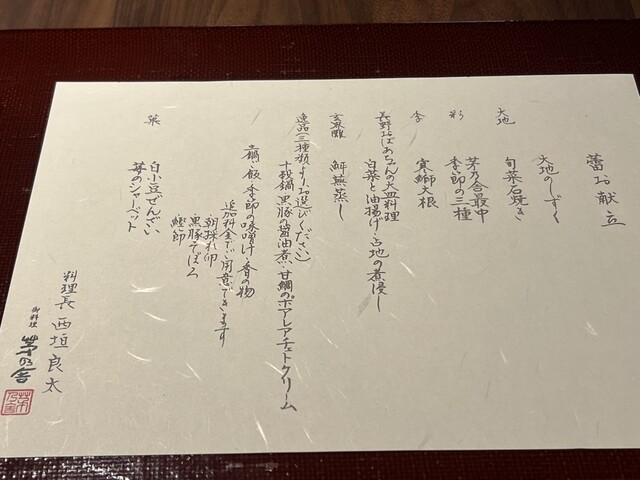 蕾お献立
大地のしずく
大地 旬菜石焼き
茅乃舎最中
彩 季節の三種
季 寒鰤大根
長野おばあちゃんの大皿料理
白菜と油揚げ・占地の煮浸し
玄界灘 鮃蕪蒸し
逸品(三種類よりお選びください)
十穀鍋 黒豚の醤油煮 甘鯛のポアレアチェトクリーム
土鍋ご飯・季節の味噌汁・香の物
追加料金でご用意できます
朝採れ卵
黒豚そぼろ
鰹節
菓 白小豆ぜんざい
苺のシャーベット
料理長 西垣良太
御料理 茅乃舎